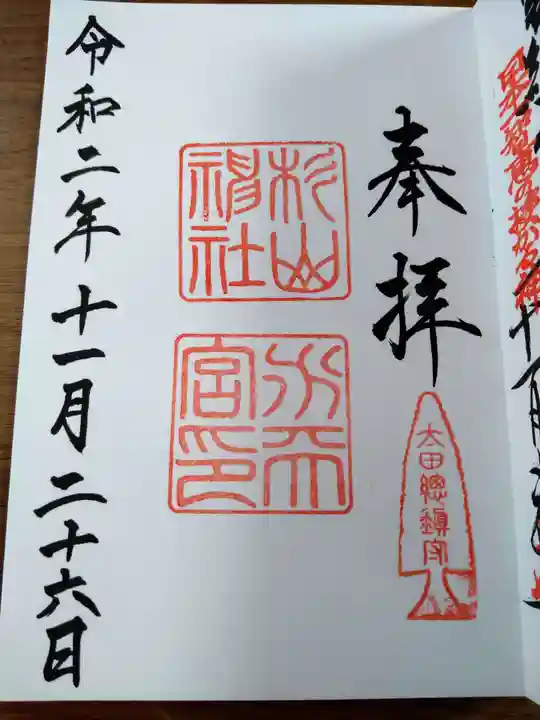 奉拝
太田總鎮守
杉山
神社
水天
宮印
令和二年十一月二十六日